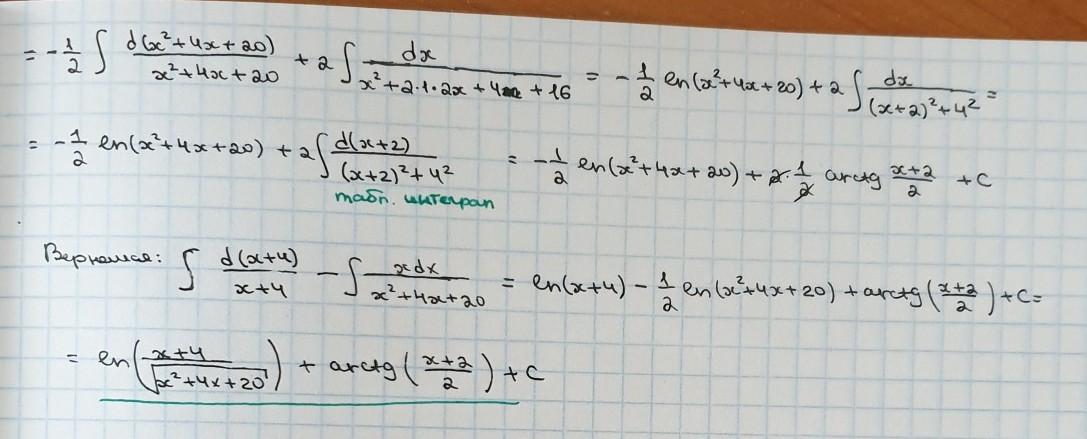 = -1/2 ∫ d(x²+4x+20)/(x²+4x+20) + 2∫ dx/(x²+2·1·2x+4+16) = -1/2 ln(x²+4x+20) + 2∫ dx/((x+2)²+4²) =
= -1/2 ln(x²+4x+20) + 2∫ d(x+2)/((x+2)²+4²) = -1/2 ln(x²+4x+20) + 2·1/2 arctg (x+2)/2 + C
табл. интеграл
Вернемся: ∫ d(x+4)/(x+4) - ∫ xdx/(x²+4x+20) = ln(x+4) - 1/2 ln(x²+4x+20) + arctg((x+2)/2) + C =
= ln((x+4)/√(x²+4x+20)) + arctg((x+2)/2) + C